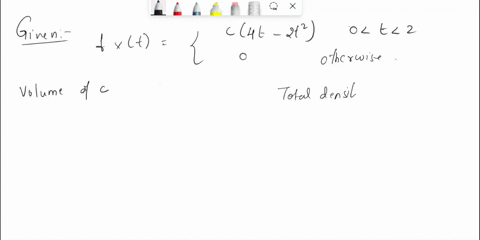 Given:- f x(t) = { c(4t - 2t²) 0 < t < 2
0 otherwise.
Volume of c Total densit